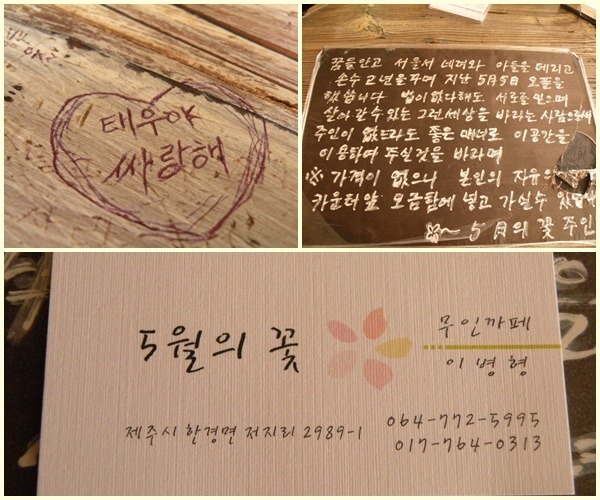 태우야
싸랑해
꿈을 안고 서울서 내려와 아들을 데리고
손수 2년을 꾸며 지난 5月 5日 오픈을
했습니다 법이 없다해도 서로를 믿으며
살아갈수 있는 그런 세상을 바라는 사람으로써
주인이 없드라도 좋은 매너로 이공간을
이용하여 주실것을 바라며
※ 가격이 없으니 본인의 자유의
카운터 앞 요금함에 넣고 가실수
5月의 꽃 주인
5월의 꽃
무인까페
이병형
제주시 한경면 저지리 2989-1
064-772-5995
017-764-0313